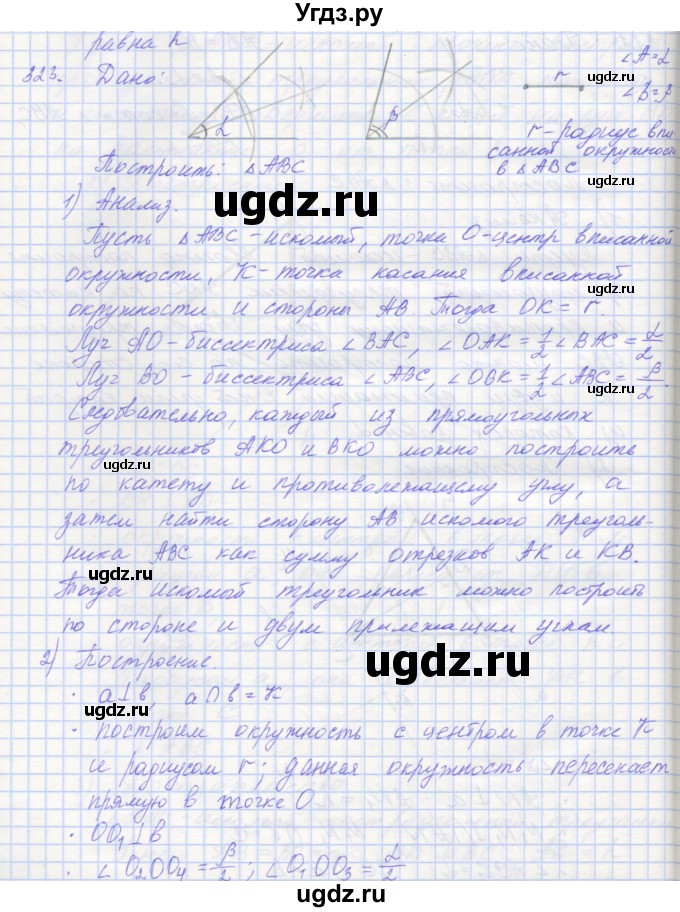 Угдз.ру
равна h
323. Дано:
∠A=α
∠B=β
r
α
β
r-радиус впи-
санной окружности
в △ABC
Построить: △ABC
1) Анализ.
Пусть △ABC - искомый, точка O-центр вписанной
окружности, K-точка касания вписанной
окружности и стороны AB. Тогда OK = r.
Луч AO - биссектриса ∠BAC, ∠OAK = 1/2 ∠BAC = α/2
Луч BO - биссектриса ∠ABC, ∠OBK = 1/2 ∠ABC = β/2.
Следовательно, каждый из прямоугольных
треугольников AKO и BKO можно построить
по катету и противолежащему углу, а
затем найти сторону AB искомого треуголь-
ника ABC как сумму отрезков AK и KB.
Тогда искомый треугольник можно построить
по стороне и двум прилежащим углам.
2) Построение.
· a⊥b, a∩b = K
· построим окружность с центром в точке K
и радиусом r; данная окружность пересекает
прямую в точке O
· OO₁⊥b
· ∠O₂OO₄ = β/2; ∠O₁OO₃ = α/2
ugdz.ru
ugdz.ru
ugdz.ru
ugdz.ru
ugdz.ru
ugdz.ru
ugdz.ru
ugdz.ru
ugdz.ru
ugdz.ru
ugdz.ru
ugdz.ru
ugdz.ru
ugdz.ru